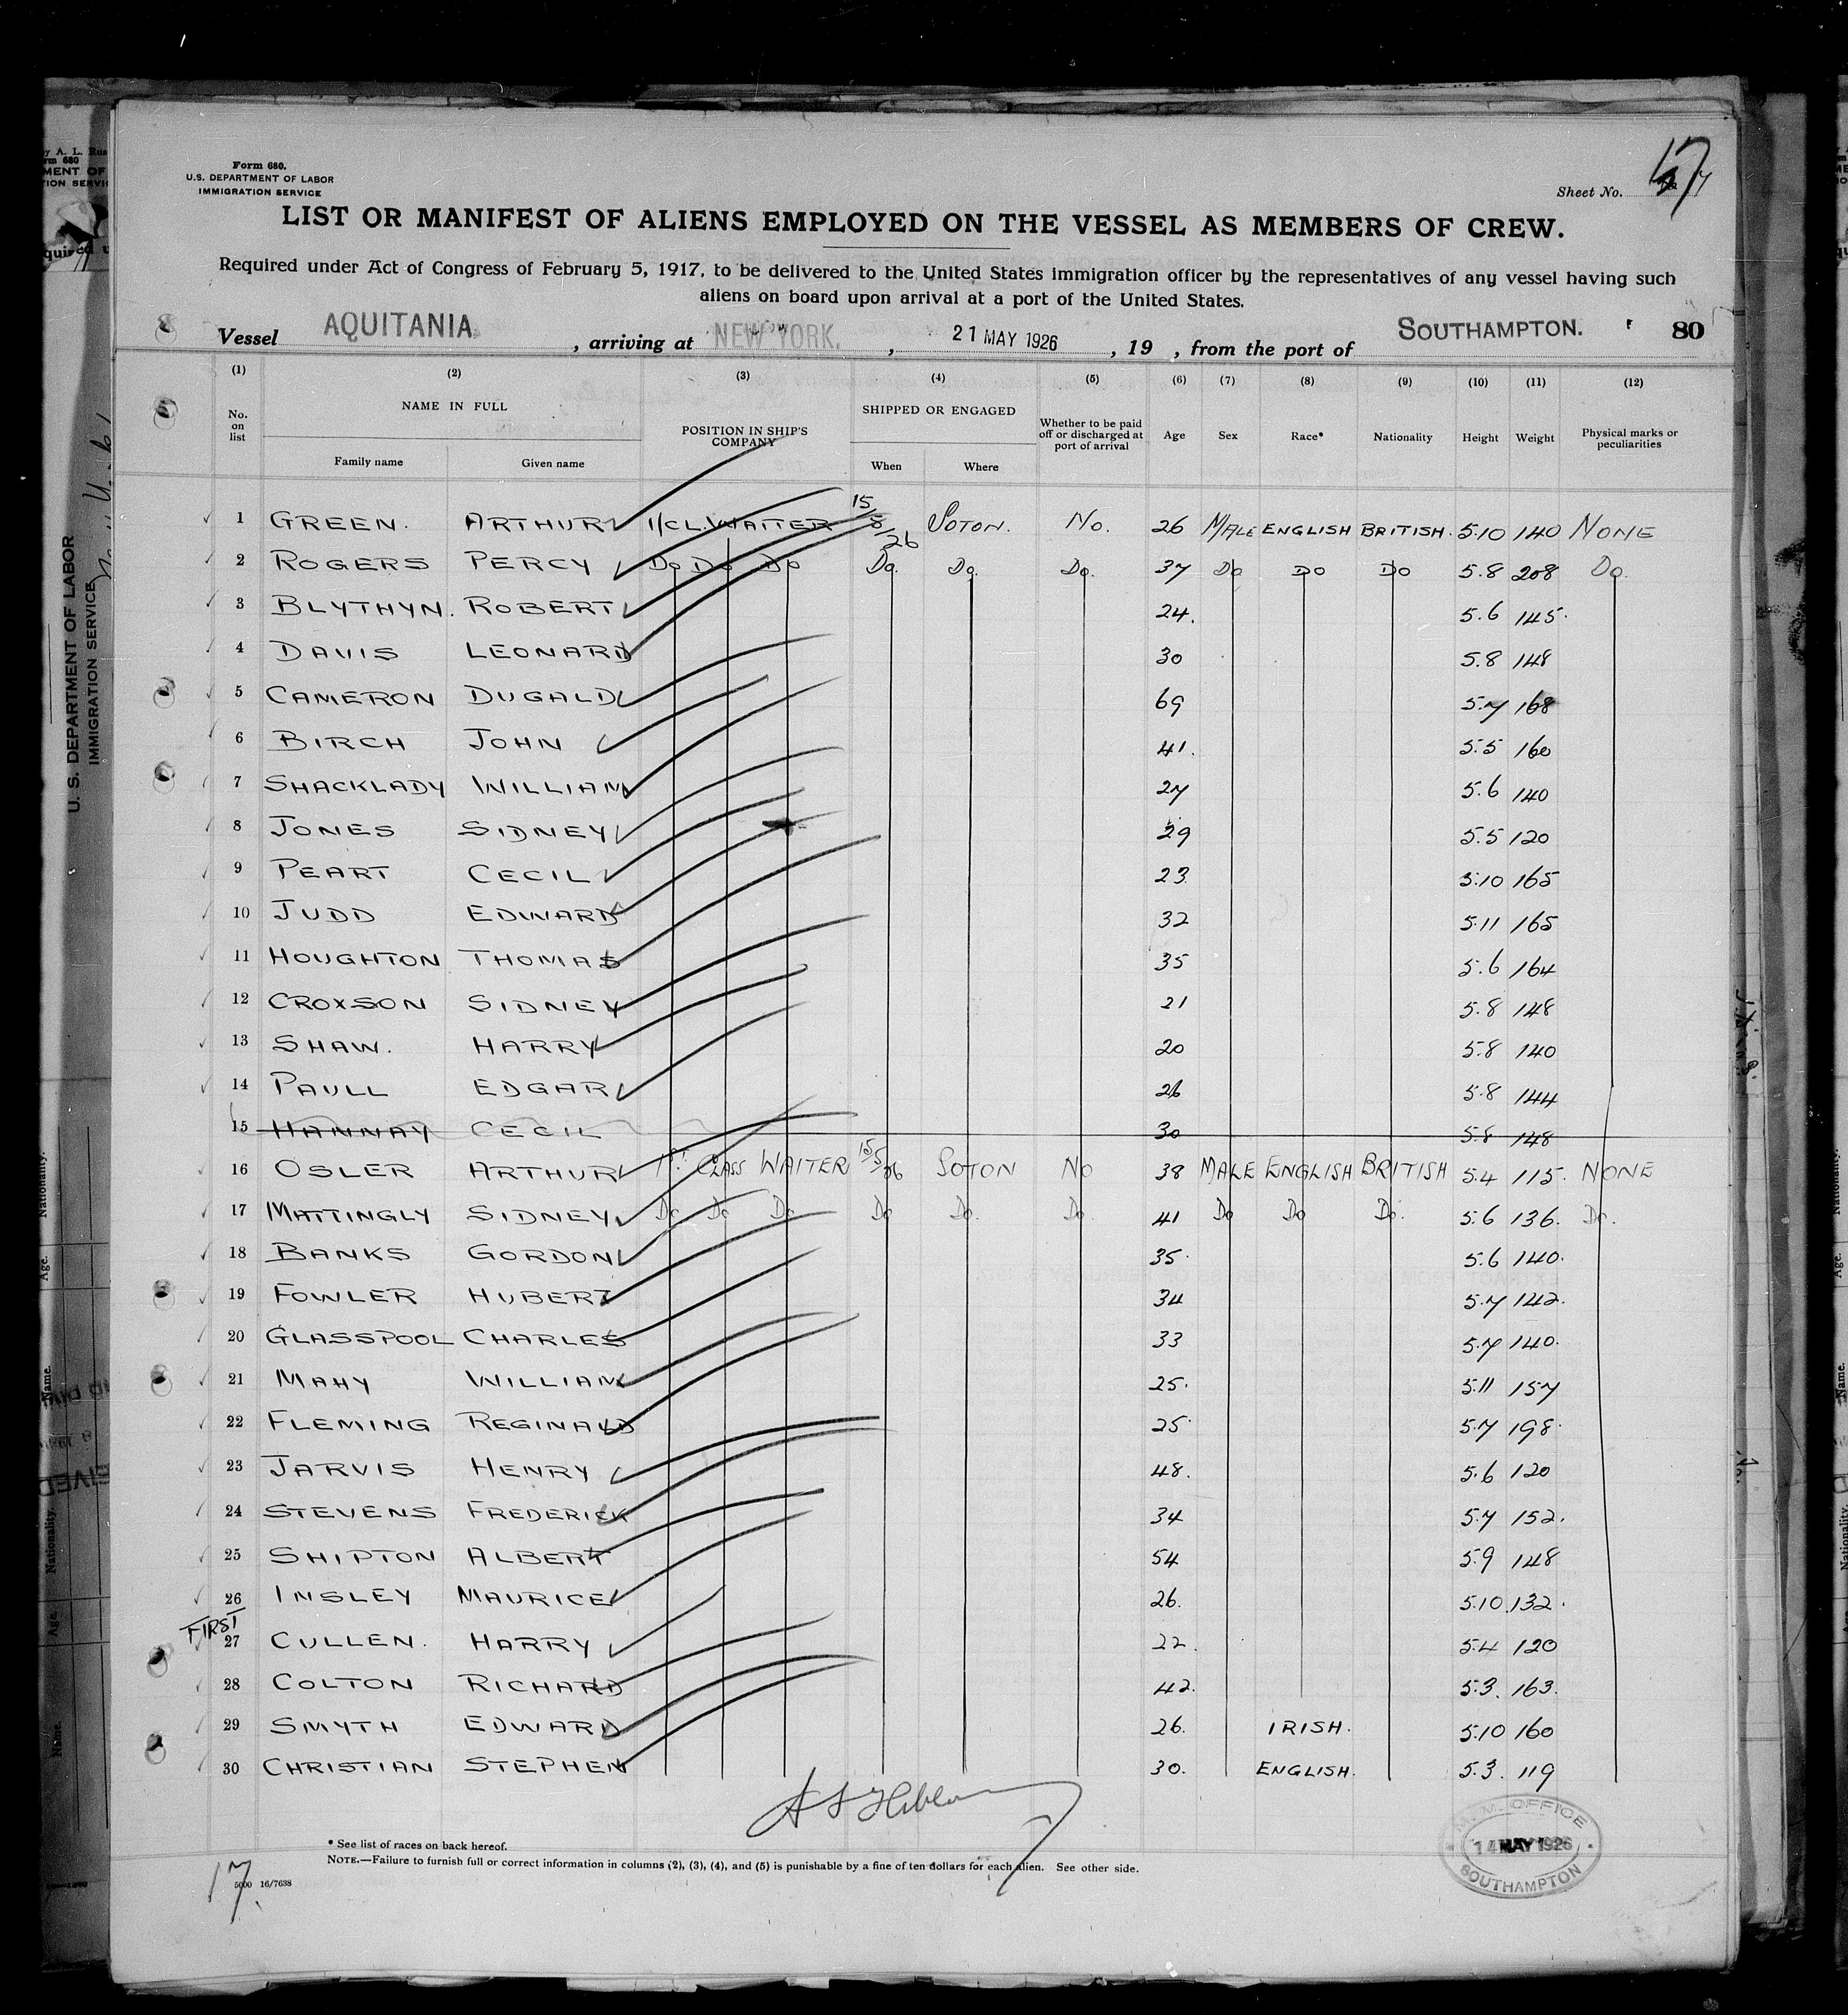 Form 680.
U.S. DEPARTMENT OF LABOR
IMMIGRATION SERVICE
Sheet No. 17
LIST OR MANIFEST OF ALIENS EMPLOYED ON THE VESSEL AS MEMBERS OF CREW.
Required under Act of Congress of February 5, 1917, to be delivered to the United States immigration officer by the representatives of any vessel having such
aliens on board upon arrival at a port of the United States.
Vessel AQUITANIA, arriving at NEW YORK, 21 MAY 1926, 19 , from the port of SOUTHAMPTON. 80
(1) (2) (3) (4) (5) (6) (7) (8) (9) (10) (11) (12)
No. on list NAME IN FULL POSITION IN SHIP'S COMPANY SHIPPED OR ENGAGED Whether to be paid off or discharged at port of arrival Age Sex Race* Nationality Height Weight Physical marks or peculiarities
Family name Given name When Where
1 GREEN. ARTHUR 1/CL. WAITER 15/5/26 SOTON. No. 26 MALE ENGLISH BRITISH. 5.10 140 NONE
2 ROGERS PERCY Do Do Do Do. Do. Do. 37 Do Do Do 5.8 208 Do.
3 BLYTHYN. ROBERT 24. 5.6 145.
4 DAVIS LEONARD 30 5.8 148
5 CAMERON DUGALD 69 5.7 168
6 BIRCH JOHN 41. 5.5 160
7 SHACKLADY WILLIAM 27 5.6 140
8 JONES SIDNEY 29 5.5 120
9 PEART CECIL 23 5.10 165
10 JUDD EDWARD 32 5.11 165
11 HOUGHTON THOMAS 35 5.6 164
12 CROXSON SIDNEY 21 5.8 148
13 SHAW. HARRY 20 5.8 140
14 PAULL EDGAR 26 5.8 144
15 HANNAY CECIL 30 5.8 148
16 OSLER ARTHUR 1ST CLASS WAITER 15/5/26 SOTON No 38 MALE ENGLISH BRITISH 5.4 115. NONE
17 MATTINGLY SIDNEY Do Do Do Do Do. Do. 41 Do Do Do. 5.6 136. Do.
18 BANKS GORDON 35. 5.6 140.
19 FOWLER HUBERT 34 5.7 142.
20 GLASSPOOL CHARLES 33 5.7 140.
21 MAHY WILLIAM 25. 5.11 157
22 FLEMING REGINALD 25 5.7 198.
23 JARVIS HENRY 48. 5.6 120
24 STEVENS FREDERICK 34 5.7 152.
25 SHIPTON ALBERT 54 5.9 148
26 INSLEY MAURICE 26. 5.10 132.
FIRST
27 CULLEN. HARRY 22. 5.4 120
28 COLTON RICHARD 42. 5.3. 163.
29 SMYTH EDWARD 26. IRISH. 5.10 160
30 CHRISTIAN STEPHEN 30. ENGLISH. 5.3. 119
* See list of races on back hereof.
NOTE.—Failure to furnish full or correct information in columns (2), (3), (4), and (5) is punishable by a fine of ten dollars for each alien. See other side.
5000 16/7638
17.
M.M. OFFICE
14 MAY 1926
SOUTHAMPTON
U. S. DEPARTMENT OF LABOR
IMMIGRATION SERVICE